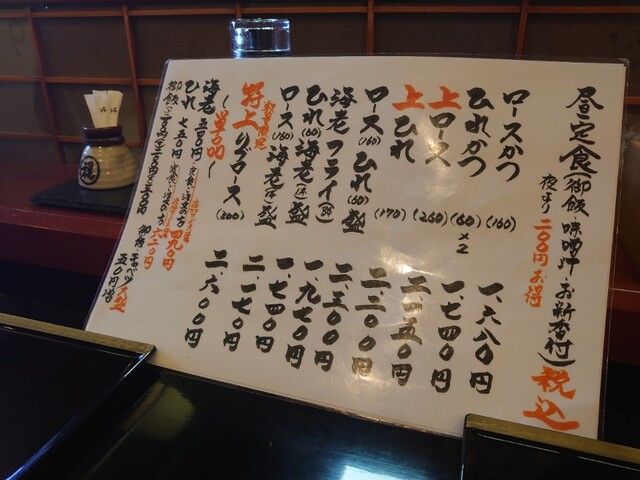 昼定食(御飯 味噌汁 お新香付)税込
夜より二〇〇円お得
ロースかつ (160) 一、六八〇円
ひれかつ (60)×2 一、七四〇円
上ロース (260) 二、一五〇円
上ひれ (170) 二、二〇〇円
ロース(160) ひれ(60)盛 二、三〇〇円
海老フライ(3本) 一、九七〇円
ひれ(60)海老(1本)盛 一、七四〇円
ロース(160)海老(1本)盛 二、一七〇円
数量限定
特上リブロース(300) 二、六〇〇円
(単品)
海老 五〇〇円 定食ご注文の方 四九〇円
ひれ 七五〇円 定食ご注文の方 六二〇円
御飯 御新香 キャベツ大盛 五〇円増